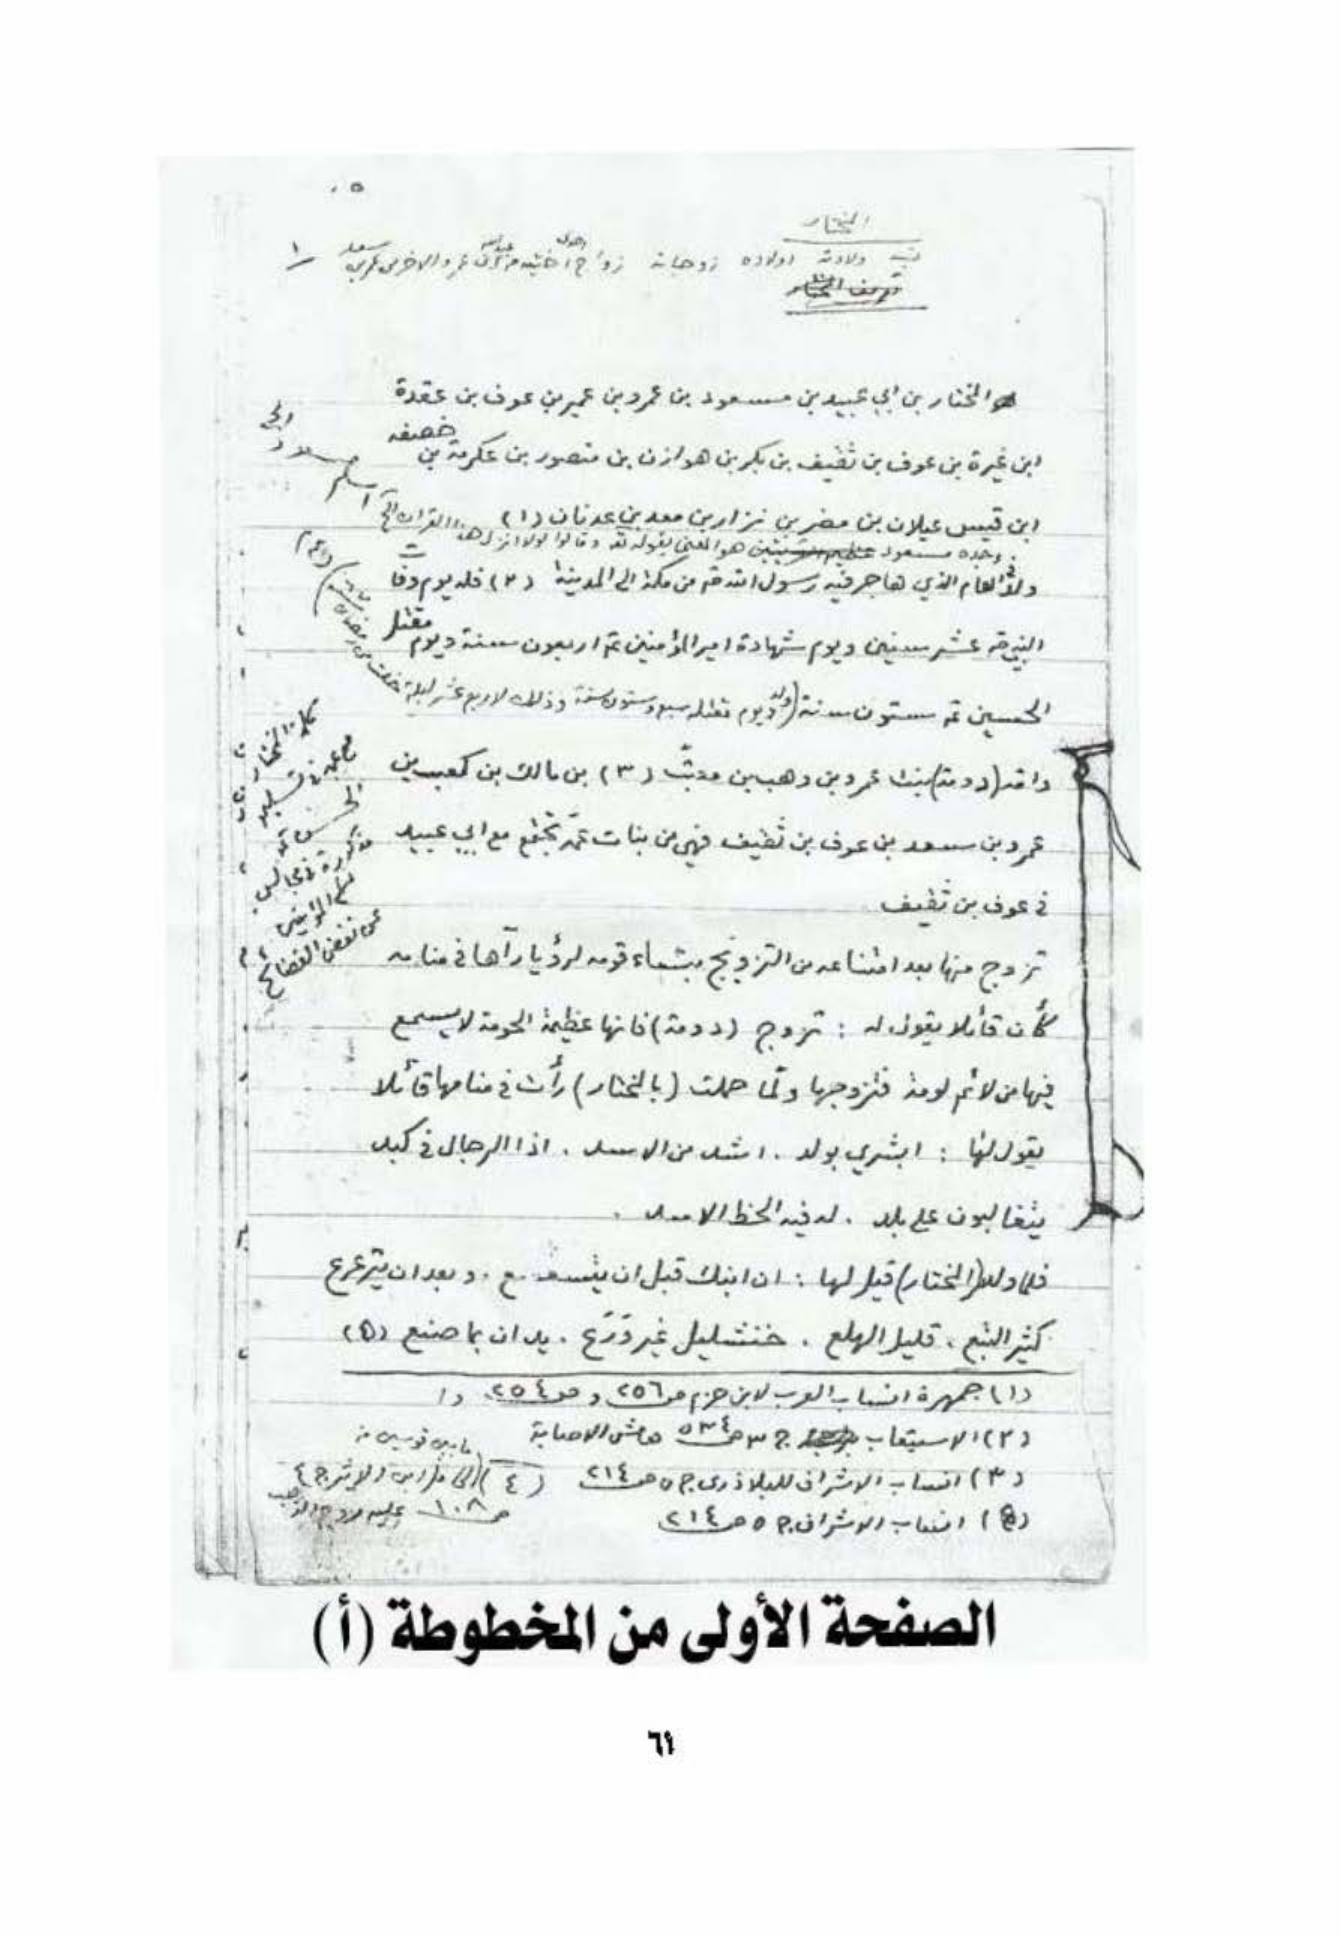 ٥٠
المختار
نسبه ولادته اولاده زوجاته زواج احدى اختيه من عبدالله بن عمر والاخرى عمر بن سعد
١
تعريف المختار
هو المختار بن ابي عبيد بن مسعود بن عمرو بن عمير بن عوف بن عقدة
ابن غيرة بن عوف بن ثقيف بن بكر بن هوازن بن منصور بن عكرمة بن خصيفه
ابن قيس عيلان بن مضر بن نزار بن معد بن عدنان (١)
وجده مسعود هو المعني بقوله تعالى وقالوا لولا انزل هذا القران الخ
ولد في العام الذي هاجر فيه رسول الله ص من مكة الى المدينة (٢) فله يوم وفات
النبي ص عشر سنين ويوم شهادة امير المؤمنين ع اربعون سنة ويوم مقتل
الحسين ع ستون سنة (وله ويوم مقتله سبع وستون سنة وذلك لاربع عشر ليلة خلت من رمضان سنة) (٤)
وامه (دومة) بنت عمرو بن وهب بن معتب (٣) بن مالك بن كعب بن
عمرو بن سعد بن عوف بن ثقيف فهي من بنات عمه تجتمع مع ابي عبيد
في عوف بن ثقيف
تزوج منها بعد امتناعه من التزويج بنساء قومه لرؤيا رآها في منامه
كأن قائلا يقول له : تزوج (دومة) فانها عظيمة الحومة لا يسمع
فيها من لائم لومة فتزوجها ولما حملت (بالمختار) رأت في منامها قائلا
يقول لها : ابشري بولد . اشد من الاسد . اذا الرجال في كبد
يتغالبون على بلد . له فيه الحظ الاسد .
فلما ولد (المختار) قيل لها : ان ابنك قبل ان يتسعسع . وبعد ان يترعرع
كثير التبع ، قليل الهلع . خنشليل غير ورع . يدان بما صنع (٥)
كلمة المختار
مع عمه في تسليم
الحسن ع
مذكورة في مجالس
المؤمنين
عن نقض الفضائح
(١) جمهرة انساب العرب لابن حزم ص ٢٥٦ و ص ٢٥٤
(٢) الاستيعاب ج ٣ ص ٥٣٤ هامش الاصابة
(٣) انساب الاشراف للبلاذري ج ٥ ص ٢١٤
(٤) ما بين قوسين من ابن الاثير ج ٤ ص ١٠٨
(٥) انساب الاشراف ج ٥ ص ٢١٤
الصفحة الأولى من المخطوطة (أ)
٦١